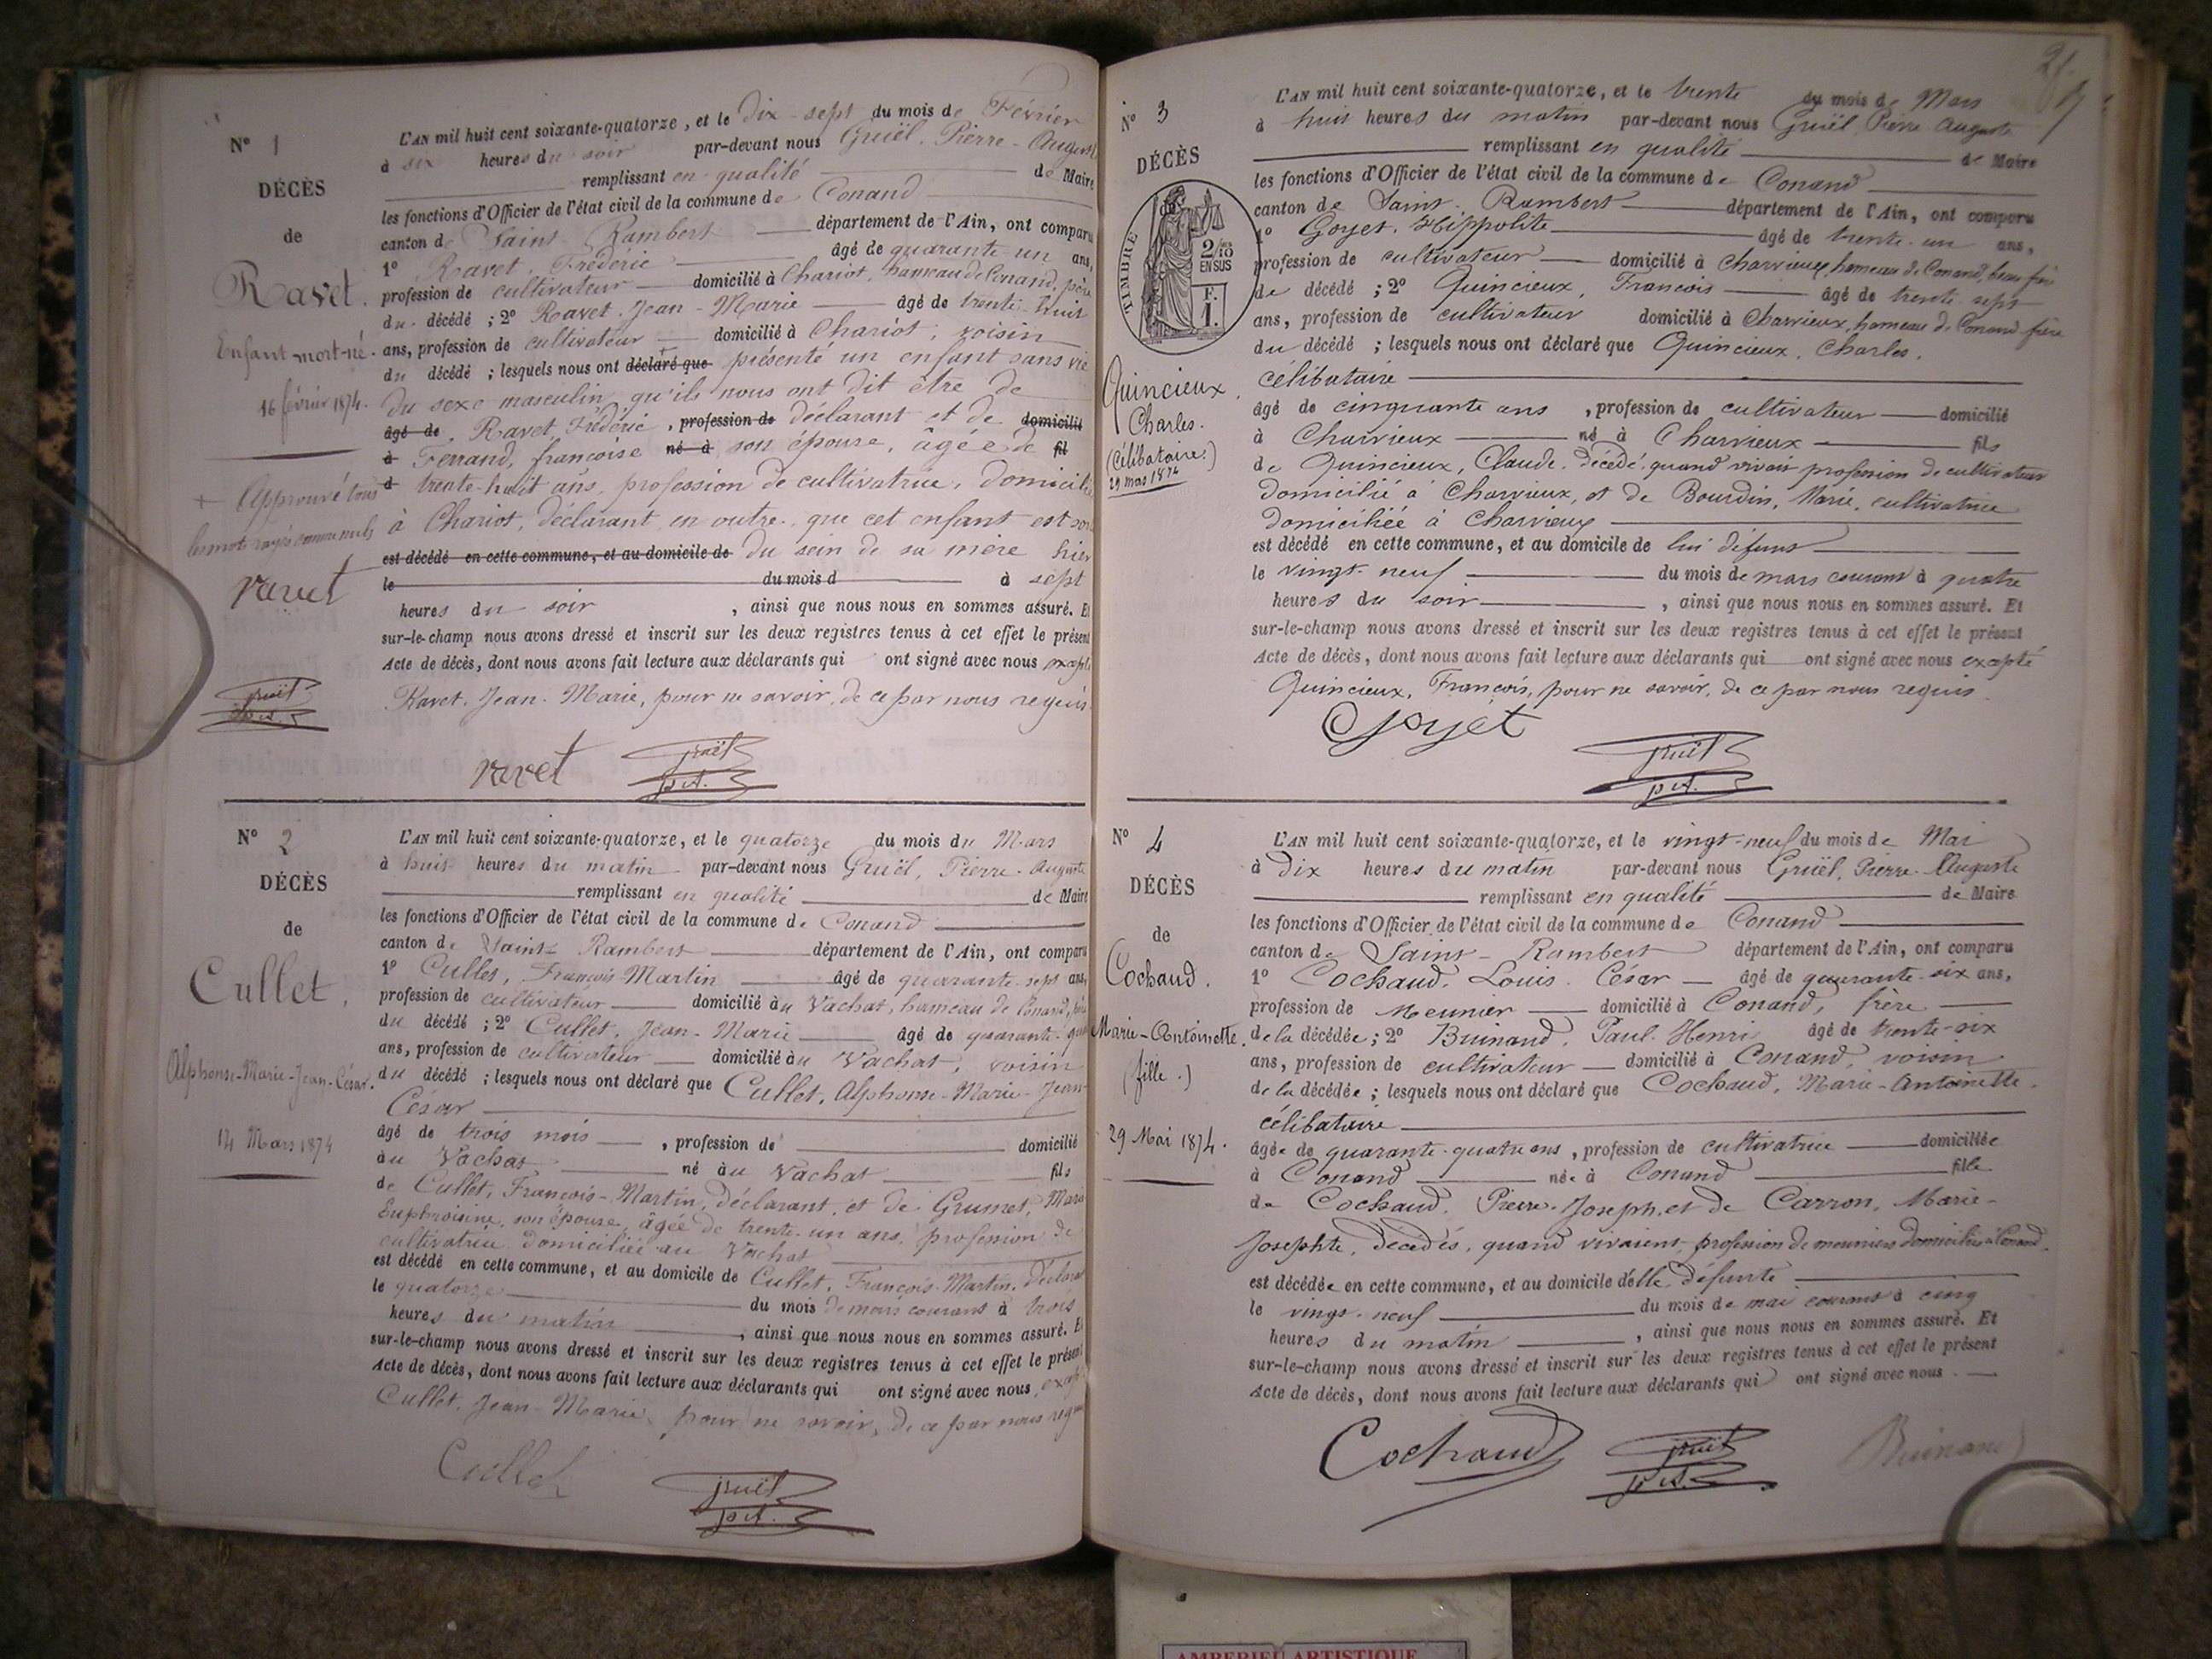 N° 1
DÉCÈS
de
Ravet.
Enfant mort-né.
16 février 1874.
+ Approuvé tous
les mots rayés comme nuls
ravet
Gruël
P.A.
L'AN mil huit cent soixante-quatorze, et le dix-sept du mois de Février
à six heures du soir par-devant nous Gruël, Pierre-Auguste
remplissant en qualité de Maire
les fonctions d'Officier de l'état civil de la commune de Conand
canton de Saint Rambert département de l'Ain, ont comparu
1° Ravet, Frédéric âgé de quarante un ans,
profession de cultivateur domicilié à Chariot, hameau de Conand, père
du décédé ; 2° Ravet, Jean-Marie âgé de trente-huit
ans, profession de cultivateur domicilié à Chariot, voisin
du décédé ; lesquels nous ont déclaré que présenté un enfant sans vie
du sexe masculin qu'ils nous ont dit être de
âgé de Ravet Frédéric, profession de déclarant et de domicilié
à Ferrand, françoise né à son épouse, âgée de fil
d trente-huit ans, profession de cultivatrice, domiciliée
à Chariot, déclarant en outre que cet enfant est sorti
est décédé en cette commune, et au domicile de du sein de sa mère hier
le du mois d à sept
heures du soir , ainsi que nous nous en sommes assuré. Et
sur-le-champ nous avons dressé et inscrit sur les deux registres tenus à cet effet le présent
Acte de décès, dont nous avons fait lecture aux déclarants qui ont signé avec nous excepté
Ravet, Jean-Marie, pour ne savoir, de ce par nous requis.
ravet
Gruël
P.A.
N° 2
DÉCÈS
de
Cullet.
Alphonse-Marie-Jean-César.
14 Mars 1874
L'AN mil huit cent soixante-quatorze, et le quatorze du mois du Mars
à huit heures du matin par-devant nous Gruël, Pierre-Auguste
remplissant en qualité de Maire
les fonctions d'Officier de l'état civil de la commune de Conand
canton de Saint Rambert département de l'Ain, ont comparu
1° Cullet, François Martin âgé de quarante-sept ans,
profession de cultivateur domicilié au Vachat, hameau de Conand, père
du décédé ; 2° Cullet, Jean-Marie âgé de quarante-
ans, profession de cultivateur domicilié au Vachat, voisin
du décédé ; lesquels nous ont déclaré que Cullet, Alphonse-Marie-Jean-
César
âgé de trois mois , profession de domicilié
au Vachat, né au Vachat fils
de Cullet, François-Martin, déclarant, et de Grumet, Marie
Euphroisine, son épouse, âgée de trente-un ans, profession de
cultivatrice domiciliée au Vachat
est décédé en cette commune, et au domicile de Cullet, François-Martin, déclarant
le quatorze du mois de mars courant à trois
heures du matin , ainsi que nous nous en sommes assuré. Et
sur-le-champ nous avons dressé et inscrit sur les deux registres tenus à cet effet le présent
Acte de décès, dont nous avons fait lecture aux déclarants qui ont signé avec nous, excepté
Cullet, Jean-Marie, pour ne savoir, de ce par nous requis
Cullet
Gruël
P.A.
21.
N° 3
DÉCÈS
de
TIMBRE
2/10 EN SUS
F. 1.
Quincieux,
Charles.
(Célibataire)
29 mars 1874
L'AN mil huit cent soixante-quatorze, et le trente du mois de Mars
à huit heures du matin par-devant nous Gruël, Pierre Auguste
remplissant en qualité de Maire
les fonctions d'Officier de l'état civil de la commune de Conand
canton de Saint-Rambert département de l'Ain, ont comparu
1° Goyet, Hippolite âgé de trente-un ans,
profession de cultivateur domicilié à Charvieux, hameau de Conand, beau frère
de décédé ; 2° Quincieux, François âgé de trente-sept
ans, profession de cultivateur domicilié à Charvieux, hameau de Conand, frère
du décédé ; lesquels nous ont déclaré que Quincieux, Charles,
célibataire
âgé de cinquante ans , profession de cultivateur domicilié
à Charvieux né à Charvieux fils
de Quincieux, Claude, décédé, quand vivait profession de cultivateur
domicilié à Charvieux, et de Bourdin, Marie, cultivatrice
domiciliée à Charvieux
est décédé en cette commune, et au domicile de lui défunt
le vingt-neuf du mois de mars courant à quatre
heures du soir , ainsi que nous nous en sommes assuré. Et
sur-le-champ nous avons dressé et inscrit sur les deux registres tenus à cet effet le présent
Acte de décès, dont nous avons fait lecture aux déclarants qui ont signé avec nous excepté
Quincieux, François, pour ne savoir, de ce par nous requis.
Goyet
Gruël
P.A.
N° 4
DÉCÈS
de
Cochaud.
Marie-Antoinette.
(fille.)
29 Mai 1874.
L'AN mil huit cent soixante-quatorze, et le vingt-neuf du mois de Mai
à dix heures du matin par-devant nous Gruël, Pierre-Auguste
remplissant en qualité de Maire
les fonctions d'Officier de l'état civil de la commune de Conand
canton de Saint-Rambert département de l'Ain, ont comparu
1° Cochaud, Louis César âgé de quarante-six ans,
profession de Meunier domicilié à Conand, frère
de la décédée ; 2° Buinand, Paul-Henri âgé de trente-six
ans, profession de cultivateur domicilié à Conand, voisin
de la décédée ; lesquels nous ont déclaré que Cochaud, Marie-Antoinette,
célibataire
âgée de quarante-quatre ans , profession de cultivatrice domiciliée
à Conand née à Conand fille
de Cochaud, Pierre-Joseph, et de Carron, Marie-
Josephte, décédés, quand vivaient, profession de meuniers domiciliés à Conand.
est décédée en cette commune, et au domicile d'elle défunte
le vingt-neuf du mois de mai courant à cinq
heures du matin , ainsi que nous nous en sommes assuré. Et
sur-le-champ nous avons dressé et inscrit sur les deux registres tenus à cet effet le présent
Acte de décès, dont nous avons fait lecture aux déclarants qui ont signé avec nous.
Cochaud
Gruël
P.A.
Buinand
AMBERIEU ARTISTIQUE